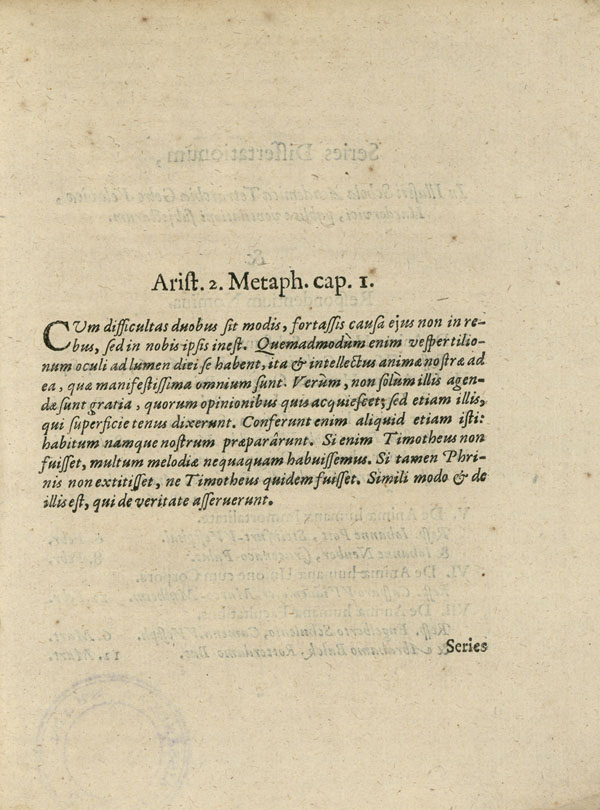 Arist. 2. Metaph. cap. 1.
CUm difficultas duobus sit modis, fortassis causa ejus non in re-
bus, sed in nobis ipsis inest. Quemadmodùm enim vespertilio-
num oculi ad lumen diei se habent, ita & intellectus animæ nostræ ad
ea, quæ manifestissima omnium sunt. Verùm, non solùm illis agen-
dæ sunt gratiæ, quorum opinionibus quis acquiescet; sed etiam illis,
qui superficie tenus dixerunt. Conferunt enim aliquid etiam isti:
habitum namque nostrum præparârunt. Si enim Timotheus non
fuisset, multum melodiæ nequaquam habuissemus. Si tamen Phri-
nis non extitisset, ne Timotheus quidem fuisset. Simili modo & de
illis est, qui de veritate asseruerunt.
Series